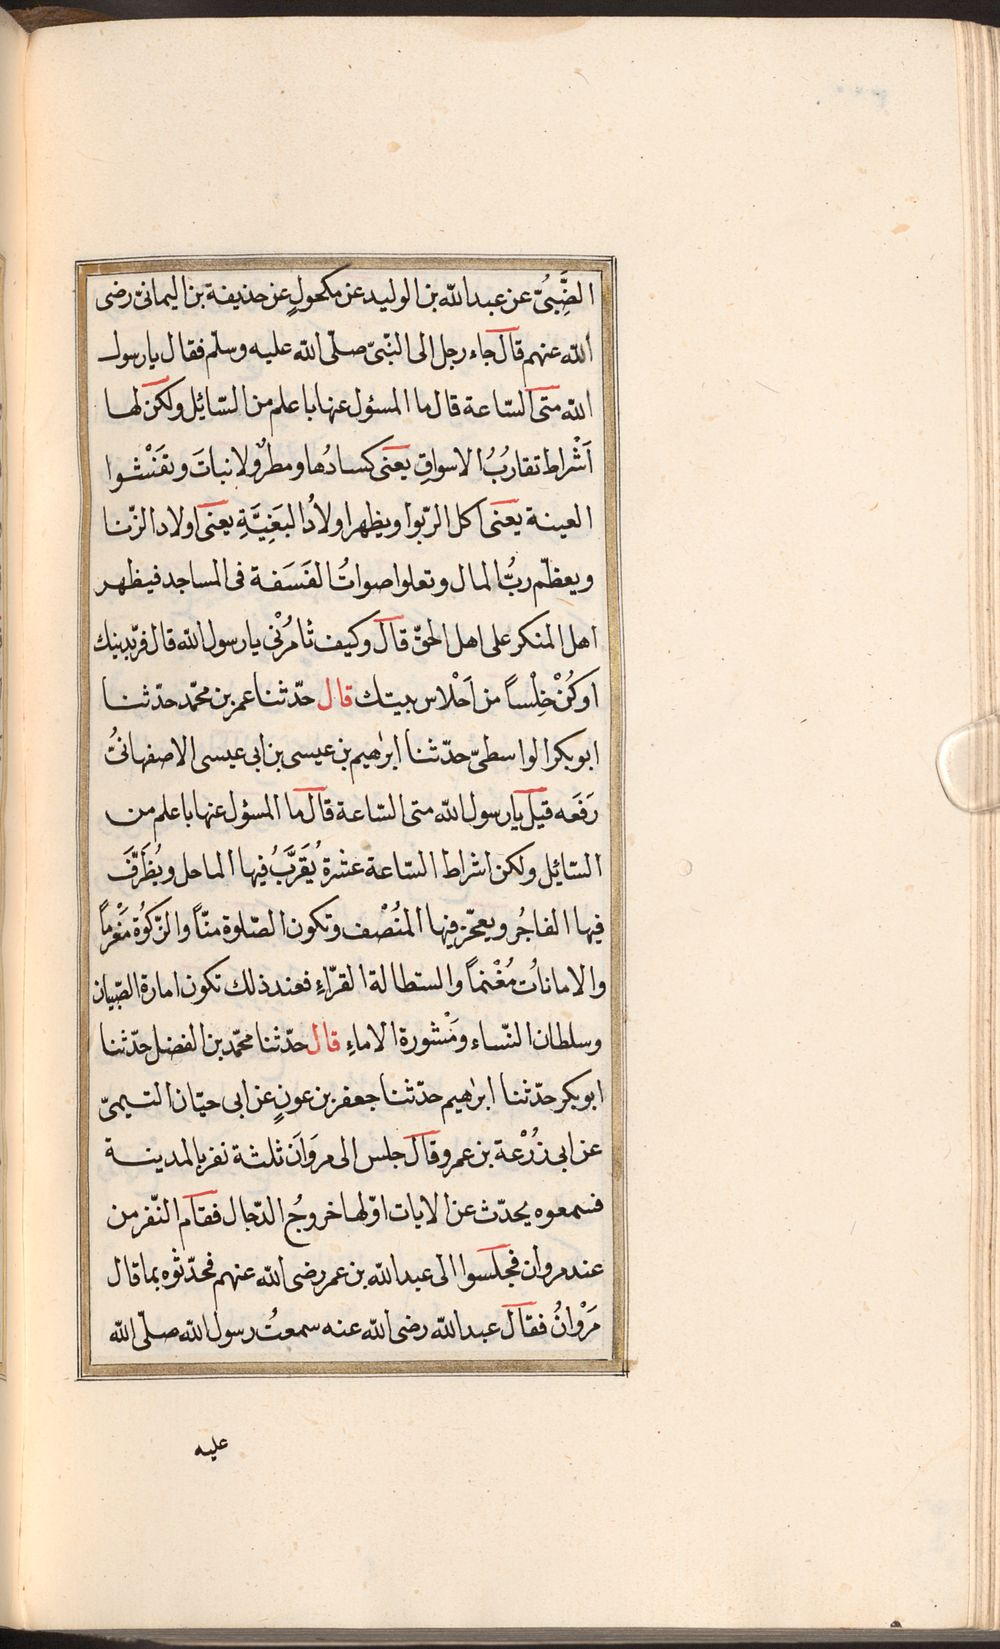 الضَّبِىُّ عن عبد الله بن الوليد عن مكحولٍ عن حذيفة بن اليمانىّ رضى
الله عنهم قال جاء رجل الى النّبىّ صلّى الله عليه وسلّم فقال يا رسول
الله متى السّاعة قال ما المسؤل عنها باعلم من السّائِل ولكن لها
اَشْراط تقاربُ الاسواقِ يعنى كسادُها ومطرٌ ولا نباتَ وتفَنْشوا
العينة يعنى اكل الرّبوا ويظهر اولادُ البَغِيَّةِ يعنى اولاد الزّنا
ويعظّم ربُّ المال وتعلوا صواتُ الفَسَقة فى المساجد فيظهر
اهل المنكر على اهل الحقّ قال وكيف تامُرُنى يا رسول الله قال فرّبدينك
اوكُنْ خِلْساً من اَحْلاس بيتك قال حدّثنا عمر بن محمّد حدّثنا
ابو بكر الواسطىّ حدّثنا ابرٰهيم بن عيسى بن ابى عيسى الاصفهانىُّ
رَفَعَه قيل يا رسول الله متى السّاعة قال ما المسؤل عنها باعلم من
السّائِل ولكن اشراط السّاعة عشرةٌ يُقَرَّبُ فيها الماحل ويُظَرَّفَ
فيها الفاجُر ويعجّز فيها المُنْصف وتكون الصّلوة منّاً والزّكوٰةُ مَغْرماً
والامانات مُغْنماً والستطالة القرّاءِ فعند ذلك تكون امارة الصّبيان
وسلطان النّساء ومَنْشورة الاماءِ قال حدّثنا محمّد بن الفضل حدّثنا
ابو بكر حدّثنا ابرٰهيم حدّثنا جعفر بن عونٍ عن ابى حيّان التيمىّ
عن ابى زُرْعة بن عمرو قال جلس الى مروَان ثلثة نفر بالمدينة
فسمعوه يحدّث عن الايات اوّلها خروجُ الدّجال فقام النّفر من
عند مروان فجلسوا الى عبد الله بن عمر رضى الله عنهم فحدّثوه بما قال
مَرْوانُ فقال عبد الله رضى الله عنه سمعتُ رسول الله صلّى الله
عليه